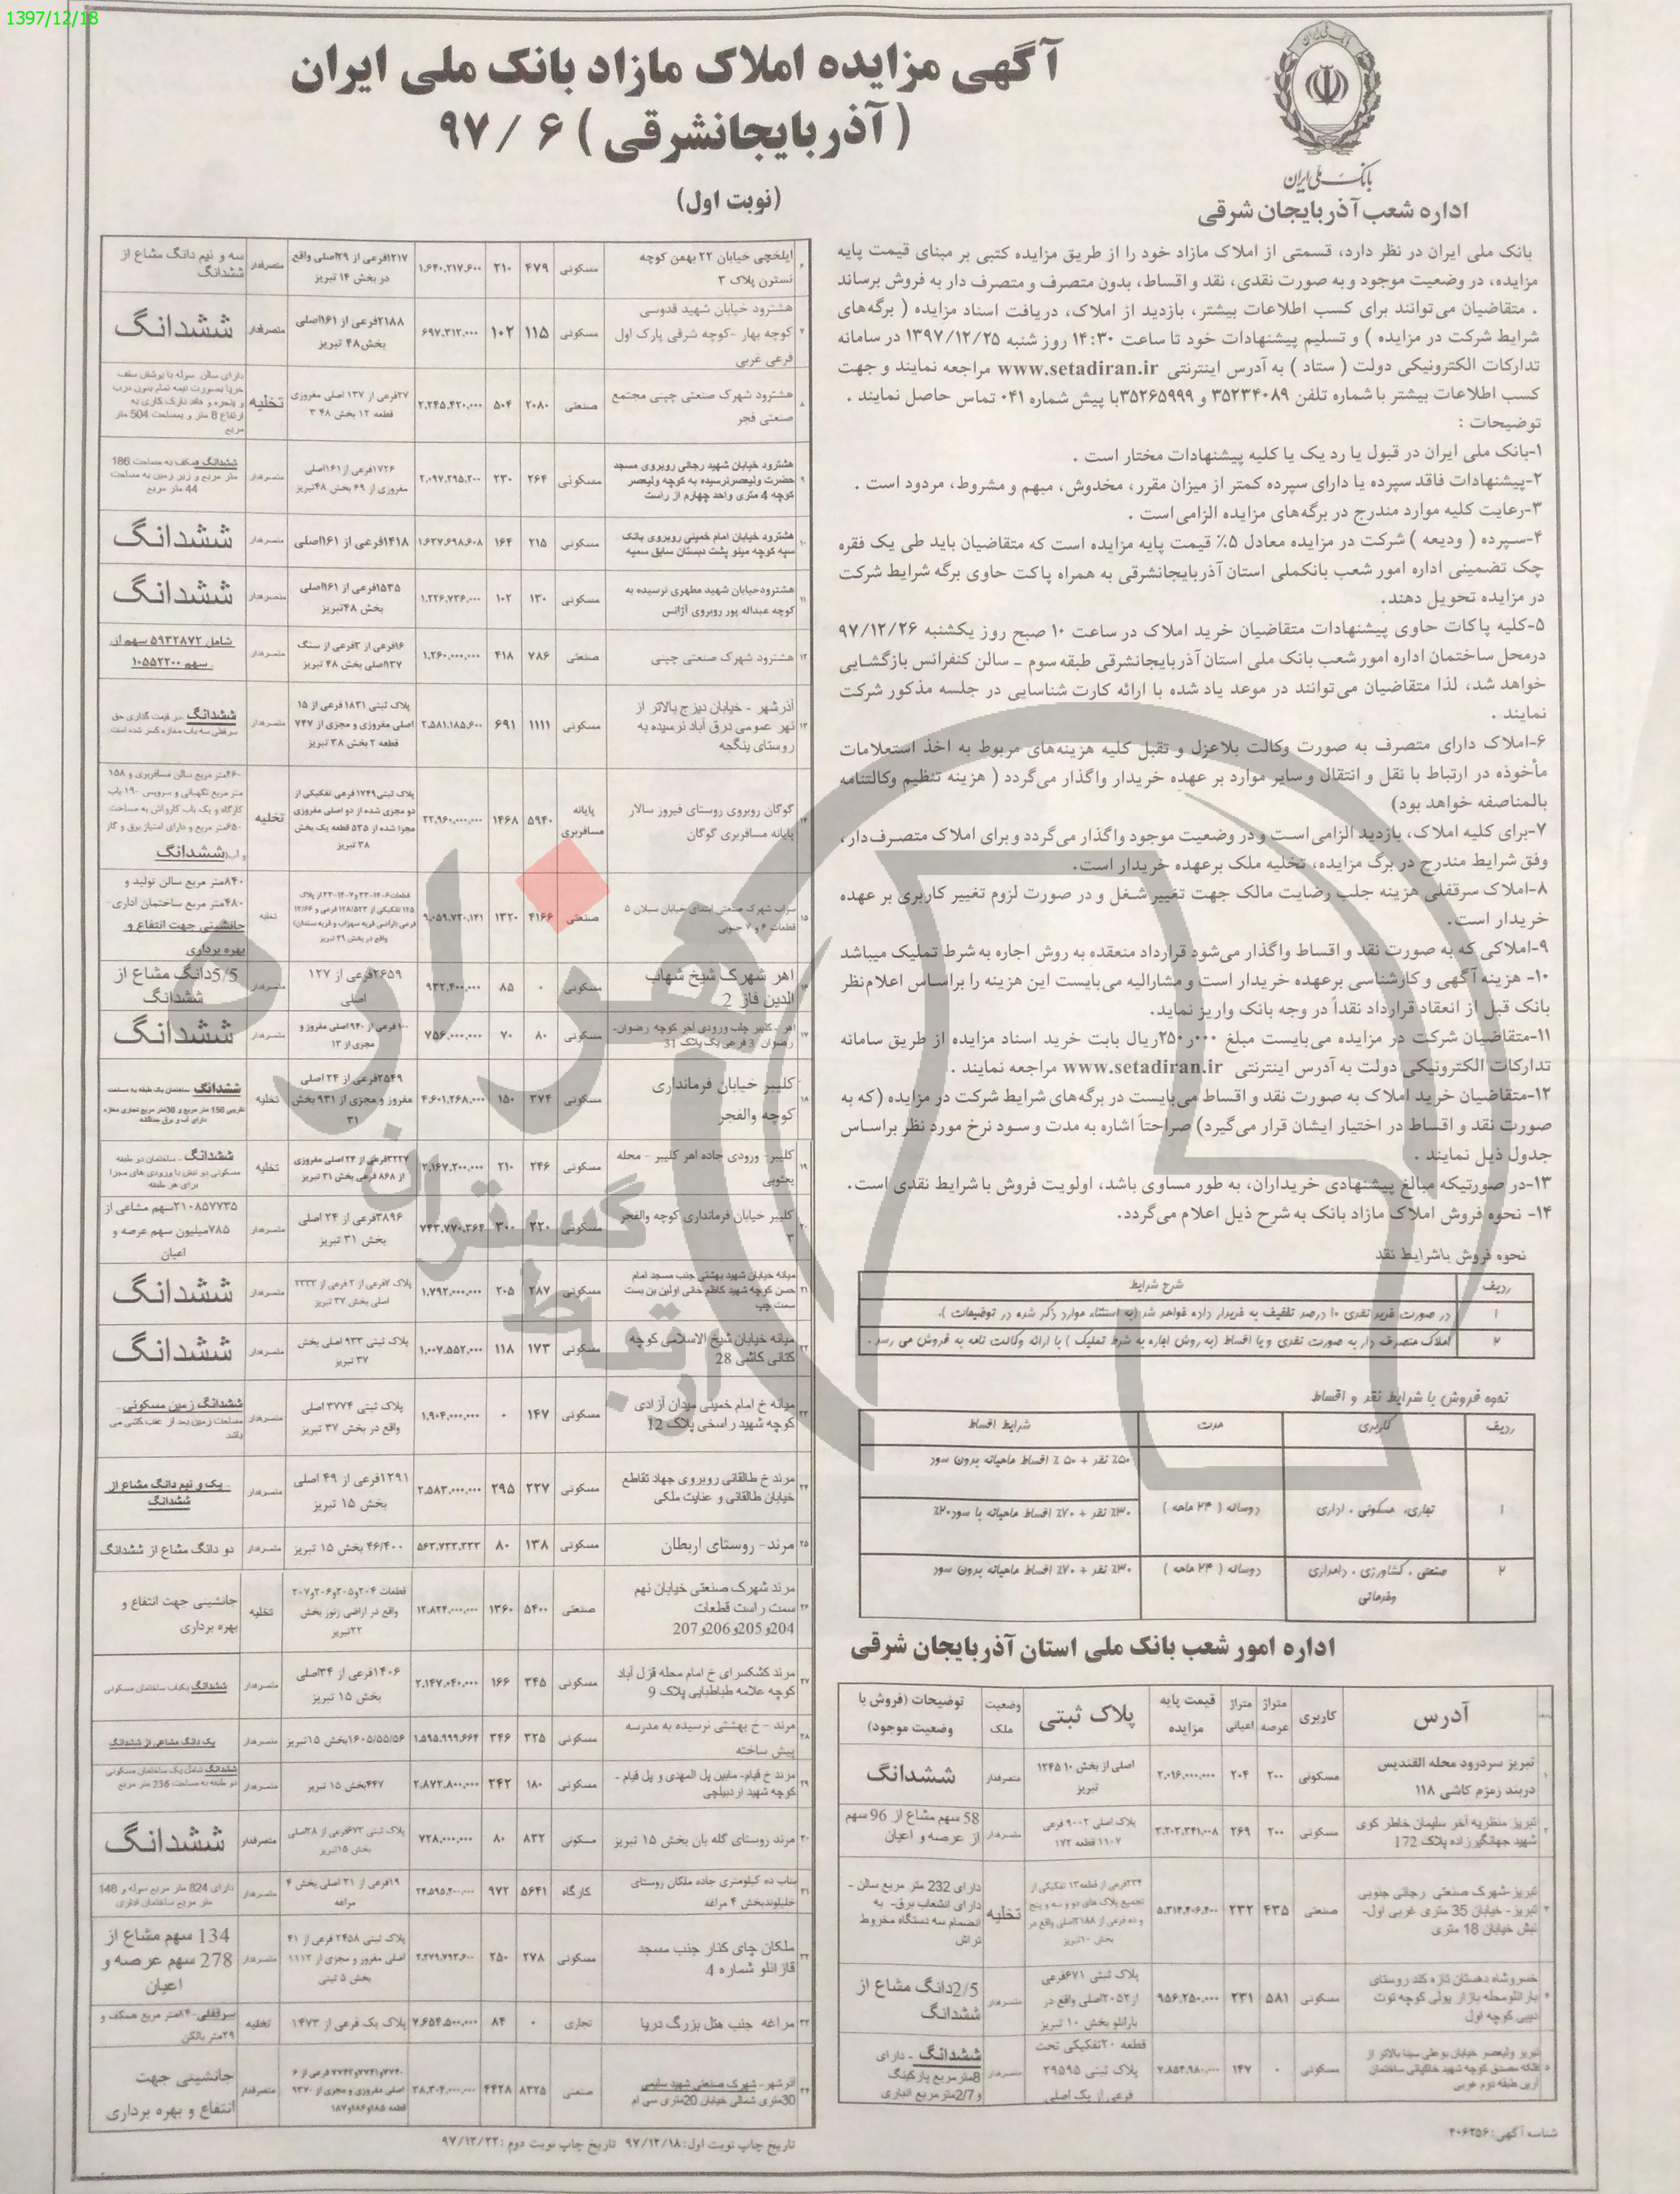 1397/12/18
آگهی مزایده املاک مازاد بانک ملی ایران
(آذربایجانشرقی) ۹۷/۶
(نوبت اول)
بانک ملی ایران
اداره شعب آذربایجان شرقی
بانک ملی ایران در نظر دارد، قسمتی از املاک مازاد خود را از طریق مزایده کتبی بر مبنای قیمت پایه
مزایده، در وضعیت موجود و به صورت نقدی، نقد و اقساط، بدون متصرف و متصرف دار به فروش برساند
. متقاضیان می‌توانند برای کسب اطلاعات بیشتر، بازدید از املاک، دریافت اسناد مزایده ( برگه‌های
شرایط شرکت در مزایده ) و تسلیم پیشنهادات خود تا ساعت ۱۴:۳۰ روز شنبه ۱۳۹۷/۱۲/۲۵ در سامانه
تدارکات الکترونیکی دولت ( ستاد ) به آدرس اینترنتی www.setadiran.ir مراجعه نمایند و جهت
کسب اطلاعات بیشتر با شماره تلفن ۳۵۲۳۴۰۸۹ و ۳۵۲۶۵۹۹۹با پیش شماره ۰۴۱ تماس حاصل نمایند .
توضیحات :
۱-بانک ملی ایران در قبول یا رد یک یا کلیه پیشنهادات مختار است .
۲-پیشنهادات فاقد سپرده یا دارای سپرده کمتر از میزان مقرر، مخدوش، مبهم و مشروط، مردود است .
۳-رعایت کلیه موارد مندرج در برگه‌های مزایده الزامی‌است .
۴-سپرده ( ودیعه ) شرکت در مزایده معادل ۵٪ قیمت پایه مزایده است که متقاضیان باید طی یک فقره
چک تضمینی اداره امور شعب بانکملی استان آذربایجانشرقی به همراه پاکت حاوی برگه شرایط شرکت
در مزایده تحویل دهند.
۵-کلیه پاکات حاوی پیشنهادات متقاضیان خرید املاک در ساعت ۱۰ صبح روز یکشنبه ۹۷/۱۲/۲۶
درمحل ساختمان اداره امور شعب بانک ملی استان آذربایجانشرقی طبقه سوم – سالن کنفرانس بازگشایی
خواهد شد، لذا متقاضیان می‌توانند در موعد یاد شده با ارائه کارت شناسایی در جلسه مذکور شرکت
نمایند .
۶-املاک دارای متصرف به صورت وکالت بلاعزل و تقبل کلیه هزینه‌های مربوط به اخذ استعلامات
مأخوذه در ارتباط با نقل و انتقال و سایر موارد بر عهده خریدار واگذار می‌گردد ( هزینه تنظیم وکالتنامه
بالمناصفه خواهد بود)
۷-برای کلیه املاک، بازدید الزامی‌است و در وضعیت موجود واگذار می‌گردد و برای املاک متصرف‌دار،
وفق شرایط مندرج در برگ مزایده، تخلیه ملک برعهده خریدار است.
۸-املاک سرقفلی هزینه جلب رضایت مالک جهت تغییر شغل و در صورت لزوم تغییر کاربری بر عهده
خریدار است.
۹-املاکی که به صورت نقد و اقساط واگذار می‌شود قرارداد منعقده به روش اجاره به شرط تملیک میباشد
۱۰- هزینه آگهی و کارشناسی برعهده خریدار است و مشارالیه می‌بایست این هزینه را براساس اعلام‌نظر
بانک قبل از انعقاد قرارداد نقداً در وجه بانک واریز نماید.
۱۱-متقاضیان شرکت در مزایده می‌بایست مبلغ ۲۵۰ر۰۰۰ریال بابت خرید اسناد مزایده از طریق سامانه
تدارکات الکترونیکی دولت به آدرس اینترنتی www.setadiran.ir مراجعه نمایند .
۱۲-متقاضیان خرید املاک به صورت نقد و اقساط می‌بایست در برگه‌های شرایط شرکت در مزایده (که به
صورت نقد و اقساط در اختیار ایشان قرار می‌گیرد) صراحتاً اشاره به مدت و سود نرخ مورد نظر براساس
جدول ذیل نمایند .
۱۳-در صورتیکه مبالغ پیشنهادی خریداران، به طور مساوی باشد، اولویت فروش با شرایط نقدی است.
۱۴- نحوه فروش املاک مازاد بانک به شرح ذیل اعلام می‌گردد.
نحوه فروش باشرایط نقد
ردیف شرح شرایط
۱ در صورت خرید نقدی ۱۰ درصد تخفیف به خریدار داده خواهد شد (به استثناء موارد ذکر شده در توضیحات ).
۲ املاک متصرف دار به صورت نقدی و یا اقساط (به روش اجاره به شرط تملیک ) با ارائه وکالت نامه به فروش می رسد .
نحوه فروش با شرایط نقد و اقساط
ردیف کاربری مدت شرایط اقساط
۵۰٪ نقد + ۵۰ ٪ اقساط ماهیانه بدون سود
۱ تجاری، مسکونی ، اداری دوساله ( ۲۴ ماهه )
۳۰٪ نقد + ۷۰٪ اقساط ماهیانه با سود۲۰٪
۲ صنعتی ، کشاورزی ، دامداری وخدماتی دوساله ( ۲۴ ماهه ) ۳۰٪ نقد + ۷۰٪ اقساط ماهیانه بدون سود
اداره امور شعب بانک ملی استان آذربایجان شرقی
آدرس کاربری متراژ عرصه متراژ اعیانی قیمت پایه مزایده پلاک ثبتی وضعیت ملک توضیحات (فروش با وضعیت موجود)
تبریز سردرود محله القندیس دربند زمزم کاشی ۱۱۸ مسکونی ۲۰۰ ۲۰۴ ۲،۰۱۶،۰۰۰،۰۰۰ ۱۲۴۵ اصلی از بخش ۱۰ تبریز متصرفدار ششدانگ
۲ تبریز منظریه آخر سلیمان خاطر کوی شهید جهانگیرزاده پلاک 172 مسکونی ۲۰۰ ۲۶۹ ۳،۲۰۲،۳۴۱،۰۰۸ پلاک اصلی ۹۰۰۲ فرعی ۱۱۰۷ قطعه ۱۷۲ متصرفدار 58 سهم مشاع از 96 سهم از عرصه و اعیان
۳ تبریز-شهرک صنعتی رجائی جنوبی تبریز- خیابان 35 متری غربی اول- نبش خیابان 18 متری صنعتی ۴۳۵ ۲۳۲ ۵،۳۱۴،۴۰۶،۴۰۰ تخلیه دارای 232 متر مربع سالن - دارای انشعاب برق- به انضمام سه دستگاه مخروط تراش
۴ خسروشاه دهستان تازه کند روستای بارانلومحله بازار یولی کوچه توت دیبی کوچه اول مسکونی ۵۸۱ ۲۳۱ ۹۵۶،۲۵۰،۰۰۰ پلاک ثبتی ۶۷۱فرعی از۲۰۵۲اصلی واقع در بارانلو بخش ۱۰ تبریز متصرفدار 2/5دانگ مشاع از ششدانگ
۵ تبریز ولیعصر خیابان بوعلی سینا بالاتر از فلکه مصدق کوچه شهید خاکپائی ساختمان آرین طبقه دوم غربی مسکونی ۰ ۱۴۷ ۷،۸۵۴،۹۸۰،۰۰۰ قطعه ۲۰تفکیکی تحت پلاک ثبتی ۲۹۵۹۵ فرعی از یک اصلی متصرفدار ششدانگ - دارای 8مترمربع پارکینگ و2/7مترمربع انباری
شناسه آگهی: ۴۰۶۲۵۶
۶ ایلخچی خیابان ۲۲ بهمن کوچه نسترن پلاک ۳ مسکونی ۴۷۹ ۲۱۰ ۱،۶۴۰،۲۱۷،۶۰۰ ۱۲۱۷فرعی از ۲۹اصلی واقع در بخش ۱۴ تبریز متصرفدار سه و نیم دانگ مشاع از ششدانگ
۷ هشترود خیابان شهید قدوسی کوچه بهار -کوچه شرقی پارک اول فرعی غربی مسکونی ۱۱۵ ۱۰۲ ۶۹۷،۳۱۲،۰۰۰ ۲۱۸۸فرعی از ۱۶۱اصلی بخش۴۸ تبریز متصرفدار ششدانگ
۸ هشترود شهرک صنعتی چینی مجتمع صنعتی فجر صنعتی ۲۰۸۰ ۵۰۴ ۲،۲۴۵،۴۲۰،۰۰۰ ۲۷فرعی از ۱۳۷ اصلی مفروزی قطعه ۱۲ بخش ۴۸ تخلیه دارای سالن سوله با پوشش سقف خرپا بصورت نیمه تمام بدون درب و پنجره و فاقد نازک کاری به ارتفاع 8 متر و بمساحت 504 متر مربع
۹ هشترود خیابان شهید رجائی روبروی مسجد حضرت ولیعصرنرسیده به کوچه ولیعصر کوچه 4 متری واحد چهارم از راست مسکونی ۲۶۴ ۲۳۰ ۲،۰۹۷،۲۹۵،۲۰۰ ۱۷۲۶فرعی از ۱۶۱اصلی مفروزی از ۶۹ بخش ۴۸تبریز متصرفدار ششدانگ همکف به مساحت 186 متر مربع و زیر زمین به مساحت 44 متر مربع
۱۰ هشترود خیابان امام خمینی روبروی بانک سپه کوچه مینو پشت دبستان سابق سمیه مسکونی ۲۱۵ ۱۶۴ ۱،۶۳۷،۶۹۸،۶۰۸ ۱۴۱۸فرعی از ۱۶۱اصلی متصرفدار ششدانگ
۱۱ هشترودخیابان شهید مطهری نرسیده به کوچه عبداله پور روبروی آژانس مسکونی ۱۳۰ ۱۰۲ ۱،۲۲۶،۷۳۶،۰۰۰ ۱۵۳۵فرعی از ۱۶۱اصلی بخش ۴۸تبریز متصرفدار ششدانگ
۱۲ هشترود شهرک صنعتی چینی صنعتی ۷۸۶ ۴۱۸ ۱،۲۶۰،۰۰۰،۰۰۰ ۱۶فرعی از ۳فرعی از سنگ ۱۳۷اصلی بخش ۴۸ تبریز متصرفدار شامل ۵۹۳۲۸۷۲ سهم از ۱۰۵۵۲۲۰۰ سهم
۱۳ آذرشهر - خیابان دیزج بالاتر از نهر عمومی درق آباد نرسیده به روستای ینگجه مسکونی ۱۱۱۱ ۶۹۱ ۲،۵۸۱،۱۸۵،۶۰۰ پلاک ثبتی ۱۸۳۱ فرعی از ۱۵ اصلی مفروزی و مجزی از ۷۴۷ قطعه ۲ بخش ۳۸ تبریز متصرفدار ششدانگ -در قیمت گذاری حق سرقفلی سه باب مغازه کسر شده است
۱۴ گوگان روبروی روستای فیروز سالار پایانه مسافربری گوگان پایانه مسافربری ۵۹۴۰ ۱۴۶۸ ۲۲،۹۶۰،۰۰۰،۰۰۰ پلاک ثبتی۱۷۴۹ فرعی تفکیکی از دو مجزی شده از دو اصلی مفروزی مجزا شده از ۵۳۵ قطعه یک بخش ۳۸ تبریز تخلیه ۲۶۰متر مربع سالن مسافربری و ۱۵۸ متر مربع نگهبانی و سرویس ۱۹۰ باب کارگاه و یک باب کارواش به مساحت ۶۵۰متر مربع و دارای امتیاز برق و گاز و آب)ششدانگ
۱۵ سراب شهرک صنعتی ابتدای خیابان سبلان ۵ قطعات ۶ و ۷ جنوبی صنعتی ۴۱۶۶ ۱۳۲۰ ۹،۰۵۹،۷۲۰،۱۴۱ تخلیه ۸۴۰متر مربع سالن تولید و ۴۸۰متر مربع ساختمان اداری- جانشینی جهت انتفاع و بهره برداری
۱۶ اهر شهرک شیخ شهاب الدین فاز 2 مسکونی ۰ ۸۵ ۹۳۲،۴۰۰،۰۰۰ ۲۶۵۹فرعی از ۱۲۷ اصلی متصرفدار 5/5دانگ مشاع از ششدانگ
۱۷ اهر- کلیبر جلب ورودی آخر کوچه رضوان- رضوان 3 فرعی یک پلاک 31 مسکونی ۸۰ ۷۰ ۷۵۶،۰۰۰،۰۰۰ ۱۰۰ فرعی از ۹۴۰ اصلی مفروز و مجزی از ۱۳ متصرفدار ششدانگ
۱۸ کلیبر خیابان فرمانداری کوچه والفجر مسکونی ۳۷۴ ۱۵۰ ۴،۶۰۱،۲۶۸،۰۰۰ ۲۵۴۹فرعی از ۲۴ اصلی مفروز و مجزی از ۹۳۱ بخش ۳۱ تخلیه ششدانگ ساختمان یک طبقه به مساحت تقریبی 150 متر مربع و 30متر مربع تجاری مغازه دارای آب و برق منطقه
۱۹ کلیبر- ورودی جاده اهر کلیبر - محله یعقوبی مسکونی ۲۴۶ ۲۱۰ ۲،۱۶۷،۲۰۰،۰۰۰ ۳۲۲۷فرعی از ۲۴ اصلی مفروزی از ۸۶۸ فرعی بخش ۳۱ تبریز تخلیه ششدانگ - ساختمان دو طبقه مسکونی دو نبش با ورودی های مجزا برای هر طبقه
۲۰ کلیبر خیابان فرمانداری کوچه والفجر ۳ مسکونی ۲۲۰ ۳۰۰ ۷۴۳،۷۷۰،۳۶۴ ۳۸۹۶فرعی از ۲۴ اصلی بخش ۳۱ تبریز متصرفدار ۲۱۰۸۵۷۷۳۵سهم مشاعی از ۷۸۵میلیون سهم عرصه و اعیان
۲۱ میانه خیابان شهید بهشتی جنب مسجد امام حسن کوچه شهید کاظم خانی اولین بن بست سمت چپ مسکونی ۲۸۷ ۲۰۵ ۱،۷۹۲،۰۰۰،۰۰۰ پلاک ۷فرعی از ۲ فرعی از ۲۳۳۳ اصلی بخش ۳۷ تبریز متصرفدار ششدانگ
۲۲ میانه خیابان شیخ الاسلامی کوچه کتانی کاشی 28 مسکونی ۱۷۳ ۱۱۸ ۱،۰۰۷،۵۵۲،۰۰۰ پلاک ثبتی ۹۳۳ اصلی بخش ۳۷ تبریز متصرفدار ششدانگ
۲۳ میانه خ امام خمینی میدان آزادی کوچه شهید راسخی پلاک 12 مسکونی ۱۴۷ ۰ ۱،۹۰۴،۰۰۰،۰۰۰ پلاک ثبتی ۳۷۷۴ اصلی واقع در بخش ۳۷ تبریز متصرفدار ششدانگ زمین مسکونی- مساحت زمین بعد از عقب کشی می باشد
۲۴ مرند خ طالقانی روبروی جهاد تقاطع خیابان طالقانی و عنایت ملکی مسکونی ۲۲۷ ۲۹۵ ۲،۵۸۳،۰۰۰،۰۰۰ ۱۲۹۱فرعی از ۴۹ اصلی بخش ۱۵ تبریز متصرفدار - یک و نیم دانگ مشاع از ششدانگ
۲۵ مرند- روستای اربطان مسکونی ۱۳۸ ۸۰ ۵۶۳،۷۳۳،۳۳۳ ۴۶/۴۰۰ بخش ۱۵ تبریز متصرفدار دو دانگ مشاع از ششدانگ
۲۶ مرند شهرک صنعتی خیابان نهم سمت راست قطعات 204و205و206و207 صنعتی ۵۴۰۰ ۱۳۶۰ ۱۲،۸۲۴،۰۰۰،۰۰۰ قطعات ۲۰۴و۲۰۵و۲۰۶و۲۰۷ واقع در اراضی زنوز بخش ۲۲تبریز تخلیه جانشینی جهت انتفاع و بهره برداری
۲۷ مرند کشکسرای خ امام محله قزل آباد کوچه علامه طباطبایی پلاک 9 مسکونی ۳۴۵ ۱۶۶ ۲،۱۴۷،۰۴۰،۰۰۰ ۱۴۰۶فرعی از ۳۴اصلی بخش ۱۵ تبریز متصرفدار ششدانگ یکباب ساختمان مسکونی
۲۸ مرند - خ بهشتی نرسیده به مدرسه پیش ساخته مسکونی ۳۲۵ ۳۴۶ ۱،۵۹۵،۹۹۹،۶۶۴ ۱۶۰۵/۵۵/۵۶بخش ۱۵تبریز متصرفدار یک دانگ مشاعی از ششدانگ
۲۹ مرند خ قیام- مابین پل المهدی و پل قیام - کوچه شهید اردبیلچی مسکونی ۱۸۰ ۲۴۲ ۲،۸۷۲،۸۰۰،۰۰۰ ۴۴۷بخش ۱۵ تبریز متصرفدار ششدانگ شامل یک ساختمان مسکونی دو طبقه به مساحت 236 متر مربع
۳۰ مرند روستای گله بان بخش ۱۵ تبریز مسکونی ۸۳۲ ۸۰ ۷۲۸،۰۰۰،۰۰۰ پلاک ثبتی ۶۷۳فرعی از ۲۸اصلی بخش ۱۵تبریز متصرفدار ششدانگ
۳۱ بناب ده کیلومتری جاده ملکان روستای خلیلوندبخش ۴ مراغه کارگاه ۵۶۴۱ ۹۷۲ ۲۴،۵۹۵،۲۰۰،۰۰۰ ۱۹فرعی از ۲۱ اصلی بخش ۴ مراغه متصرفدار دارای 824 متر مربع سوله و 148 متر مربع ساختمان اداری
۳۲ ملکان چای کنار جنب مسجد قازانلو شماره 4 مسکونی ۲۷۸ ۲۵۰ ۲،۲۷۹،۷۹۳،۶۰۰ پلاک ثبتی ۲۴۵۸ فرعی از ۴۱ اصلی مفروز و مجزی از ۱۱۱۲ بخش ۵ ثبتی متصرفدار 134 سهم مشاع از 278 سهم عرصه و اعیان
۳۳ مراغه جنب هتل بزرگ دریا تجاری ۰ ۸۴ ۷،۶۵۴،۵۰۰،۰۰۰ پلاک یک فرعی از ۱۴۷۳ تخلیه سرقفلی-۸۴متر مربع همکف و ۲۹متر بالکن
۳۴ آذرشهر- شهرک صنعتی شهید سلیمی 30متری شمالی خیابان 20متری سی ام صنعتی ۸۳۲۵ ۴۴۲۸ ۳۸،۳۰۴،۰۰۰،۰۰۰ ۷۷۴۰و۷۷۴۱و۷۷۴۲ فرعی از ۶ اصلی مفروزی و مجزی از ۹۳۷۰ قطعه ۱۸۵و۱۸۶و۱۸۷ متصرفدار جانشینی جهت انتفاع و بهره برداری
تاریخ چاپ نوبت اول: ۹۷/۱۲/۱۸ تاریخ چاپ نوبت دوم : ۹۷/۱۲/۲۲
هزاره
ارتباط گستران